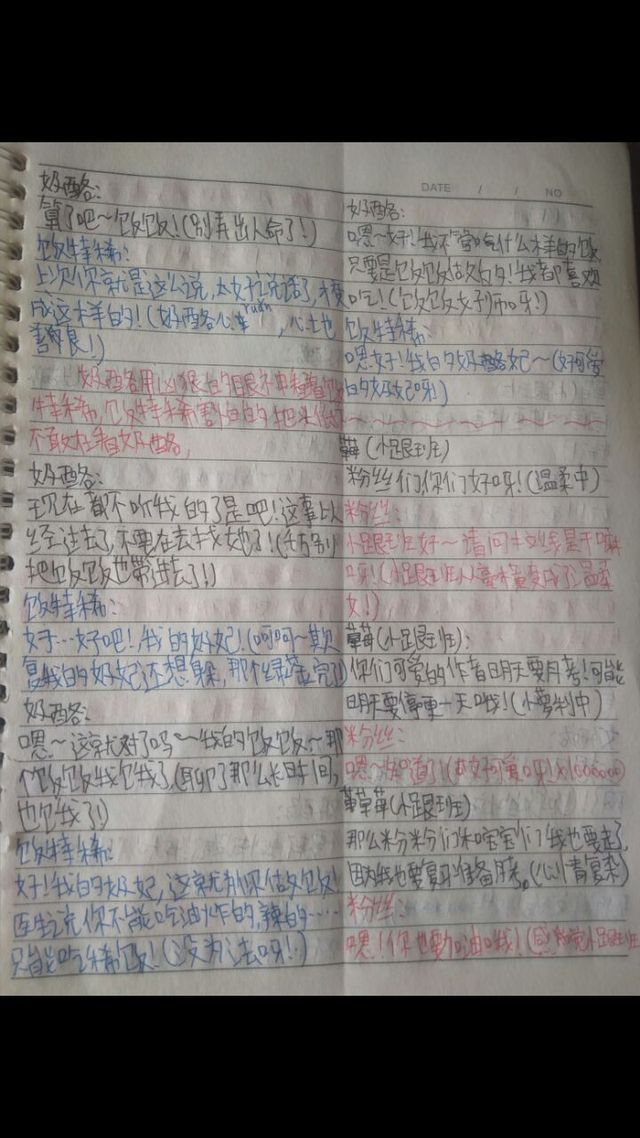 奶酪:
算了吧～饭饭!(别弄出人命了!)
饭特稀:
上次你就是这么说,太好说话了,才变
成这样的!(奶酪心生ruǎn,心土也
善良!)
奶酪用凶狠的眼神看着饭
特稀,饭特稀害怕的把米低
不敢在看奶酪,
奶酪:
现在都不听我的了是吧!这事以
经过去了,不要在去找她了!(千万别
把饭饭也带进去了!)
饭特稀:
好…好吧!我的奶妃!(呵呵～欺
复我的奶妃还想躲,那个绿茶完
奶酪:
嗯～这就对了吗～我的饭饭～那
个饭饭我饿了,(聊了那么长时间,
也饿了!)
饭特稀:
好!我的奶妃,这就别你做饭饭!
医生说你不能吃油炸的,辣的……
只能吃稀饭!(没办法呀!)
DATE / / NO
奶酪:
嗯～好!我不管吃什么样的饭
只要是饭饭做的!我都喜欢
吃!(饭饭好帅呀!)
饭特稀:
嗯好!我的奶酪妃～(好可爱
的奶妃呀)
(小跟班)
粉丝们你们好呀!(温柔中)
粉丝:
小跟班好～请问
呀!(小跟班从高冷变成了温柔
女!)
草莓(小跟班):
你们可爱的作者明天要月考!可能
明天要停更一天哦!(小萝莉中)
粉丝:
嗯～知道了!(好可爱呀!x1000000)
(小跟班)
那么粉粉们和宝宝们我也要走了,
因为我也要复习准备月考。(心情复杂)
粉丝:
嗯!你也要加油哦!(感觉小跟班